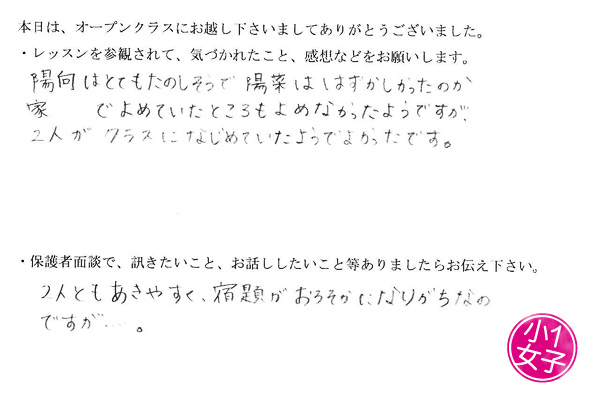 本日は、オープンクラスにお越し下さいましてありがとうございました。
・レッスンを参観されて、気づかれたこと、感想などをお願いします。
陽向はとてもたのしそうで陽菜ははずかしかったのか
家　　でよめていたところもよめなかったようですが、
2人がクラスになじめていたようでよかったです。
・保護者面談で、訊きたいこと、お話ししたいこと等ありましたらお伝え下さい。
2人ともあきやすく、宿題がおろそかになりがちなの
ですが……。
小1
女子